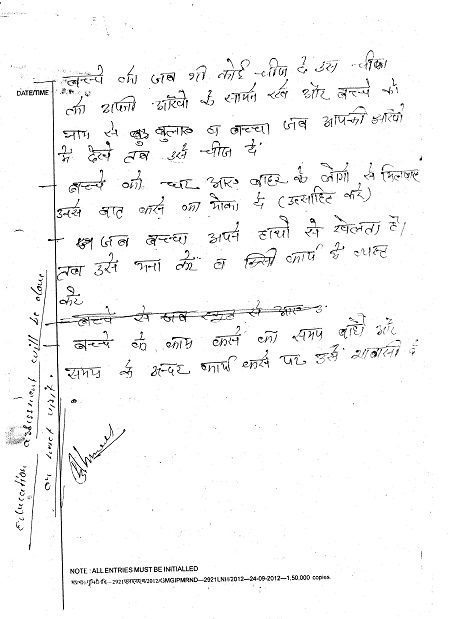 DATE/TIME
बच्चे को जब भी कोई चीज दे उस चीज
को अपनी आँखों के सामने रखे और बच्चे को
नाम से बुलाए व बच्चा जब आपकी आँखों
में देखे तब उसे चीज दें
– बच्चे को घर आए बाहर के लोगों से मिलवाएं
उनसे बात करने का मौका दे (उत्साहित करे)
– जब बच्चा अपने हाथों से खेलता है।
तब उसे मना करें व किसी कार्य में व्यस्त
करे
– बच्चे से जब स्कूल से आए
– बच्चे के काम करने का समय बांधें और
समय के अन्दर कार्य करने पर उसे शाबासी दें
Education assessment will be done
on next visit.
NOTE : ALL ENTRIES MUST BE INITIALLED
MGIPMRND—2921LNH/2012—24-09-2012—1,50,000 copies.